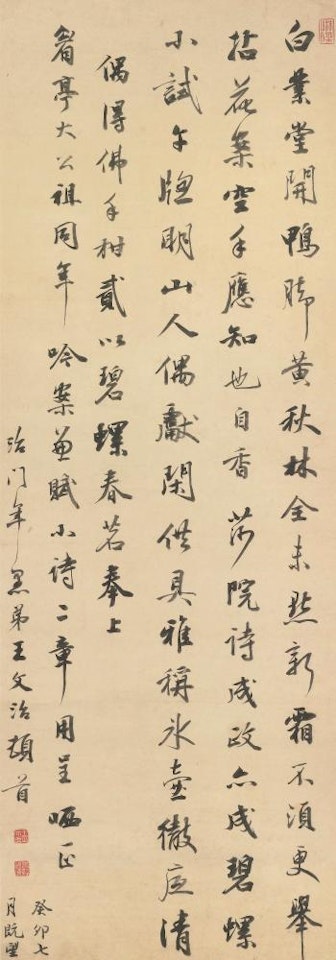 白業堂開鴨腳黃秋林全未點新霜不須更舉
拈花案空手應知也自香莎院詩成政亦成碧螺
小試午牕明山人偶獻閑供具雅稱冰壺徹底清
偶得佛手柑貳以碧螺春茗奉上
亭大公祖同年吟案兼賦小詩二章用呈哂正
治門年愚弟王文治頓首
癸卯七
月既望